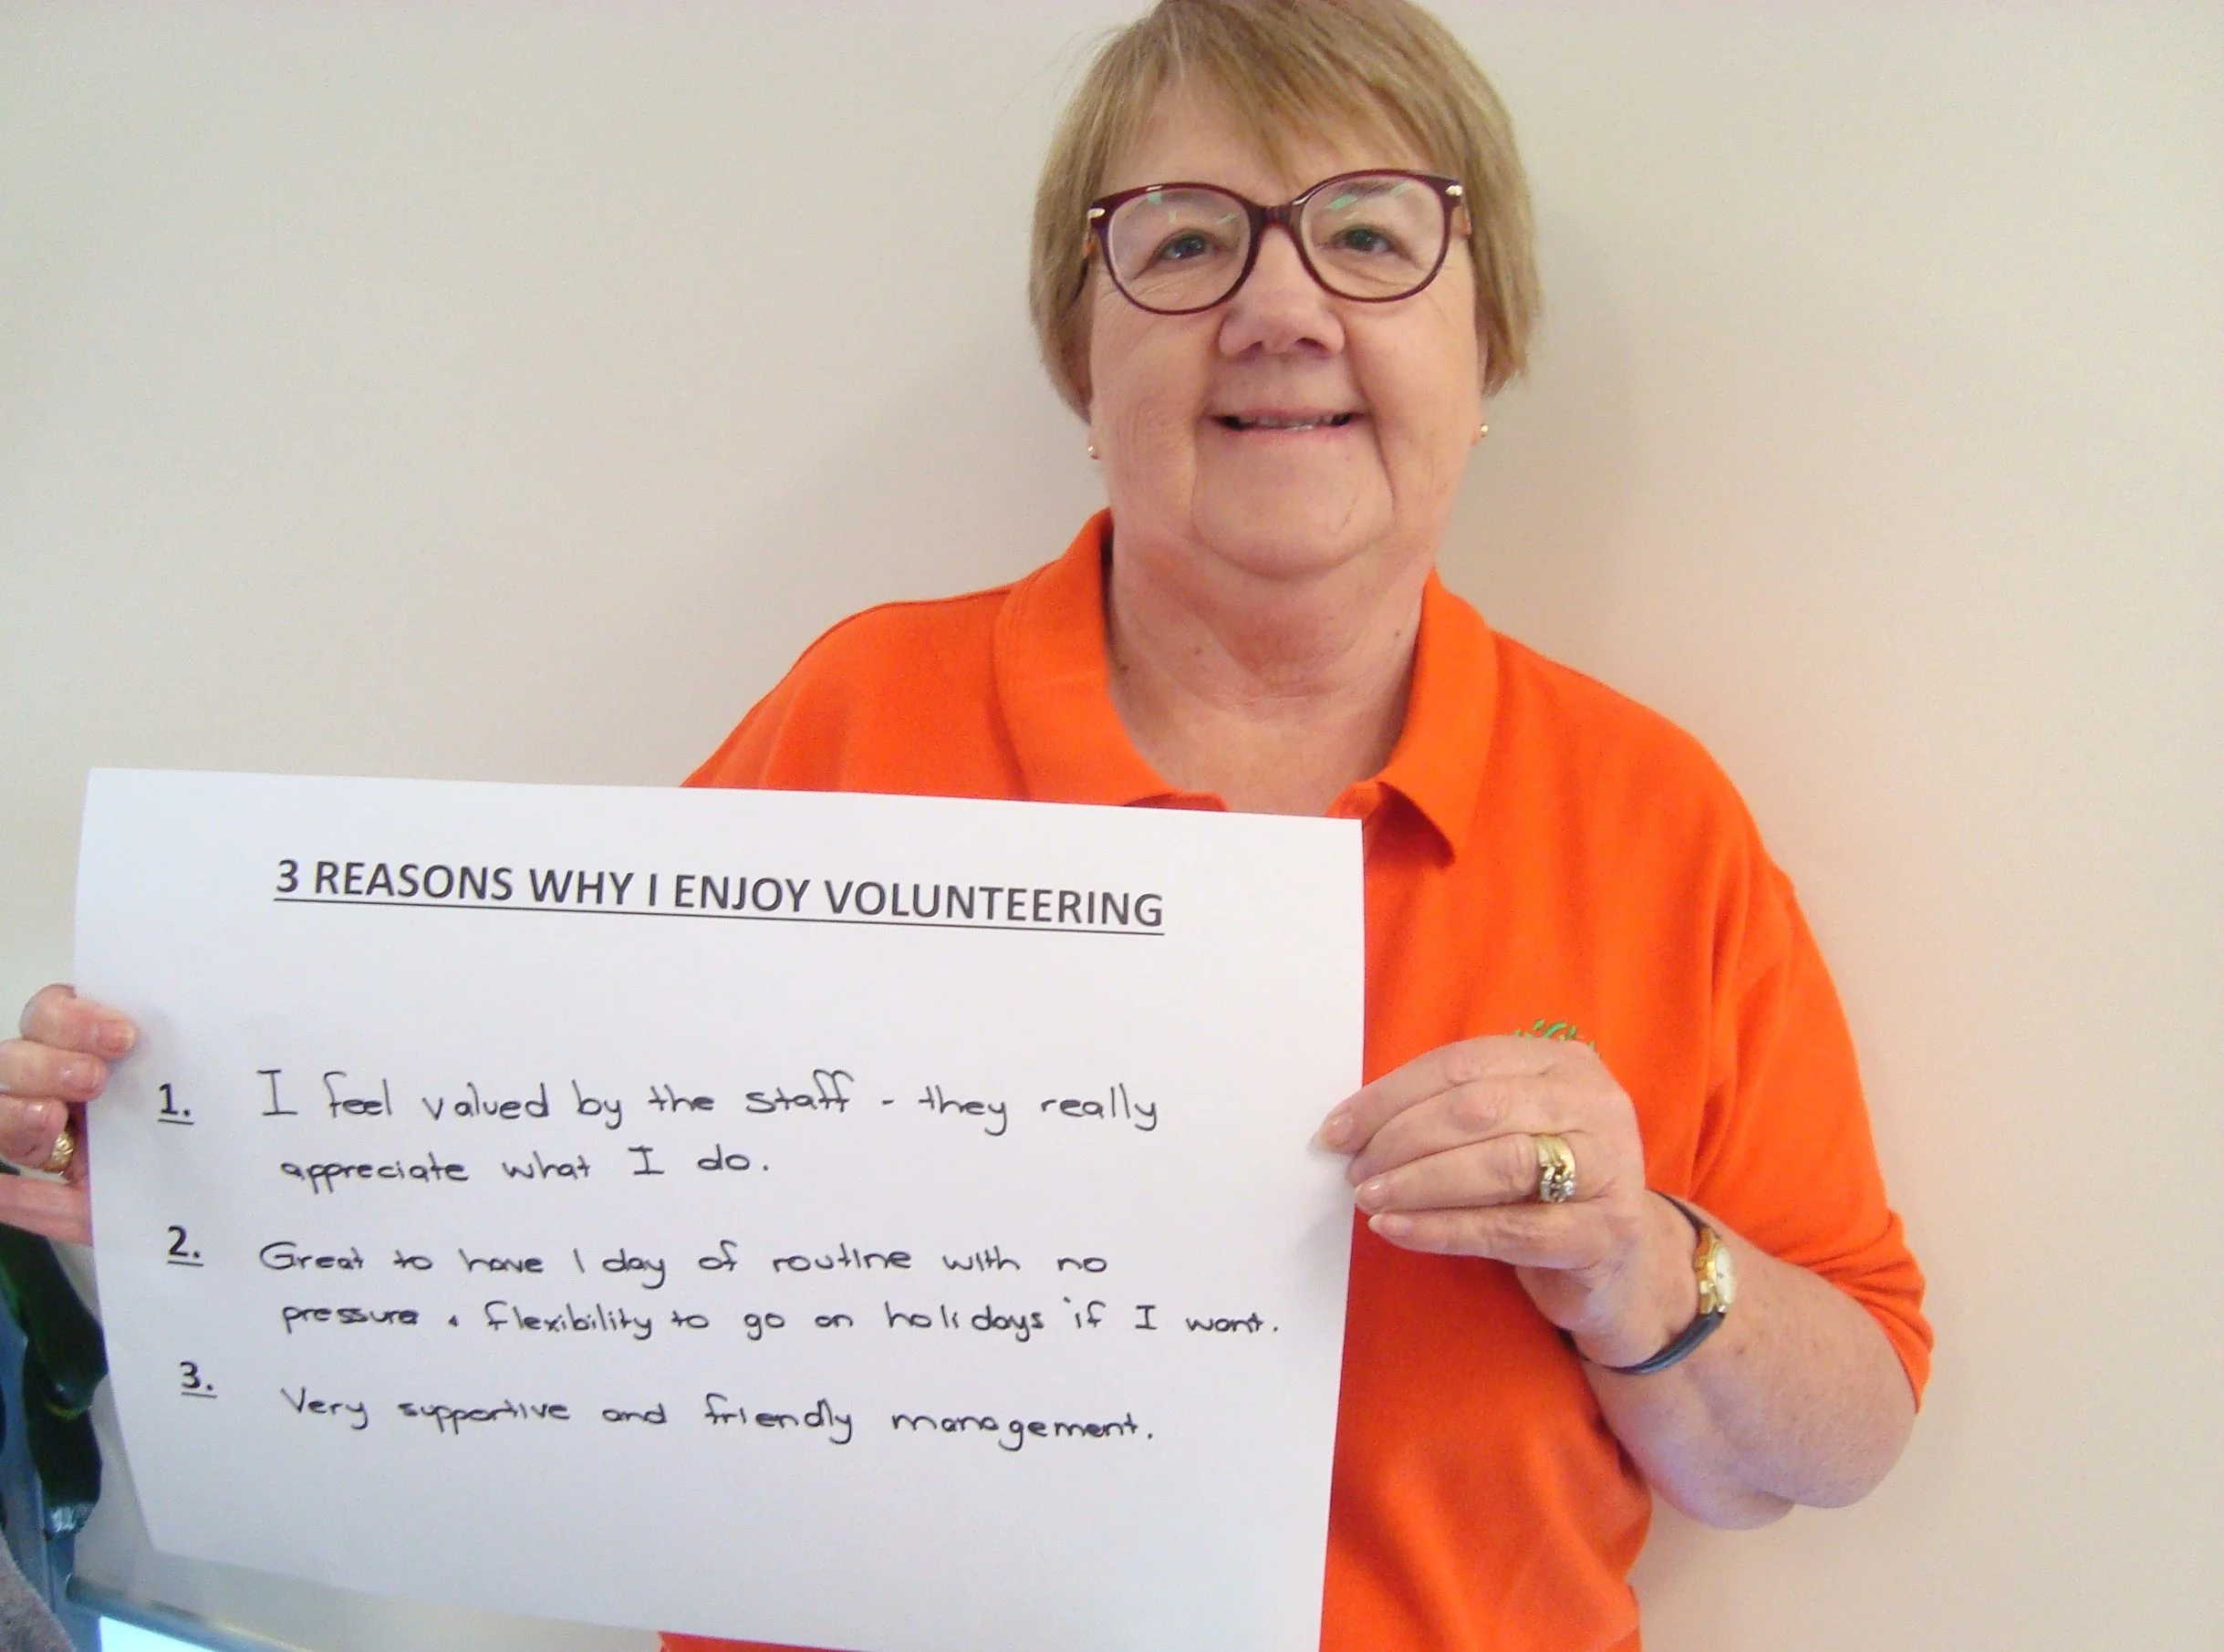 3 REASONS WHY I ENJOY VOLUNTEERING
1. I feel valued by the staff - they really
appreciate what I do.
2. Great to have 1 day of routine with no
pressure & flexibility to go on holidays if I want.
3. Very supportive and friendly management.